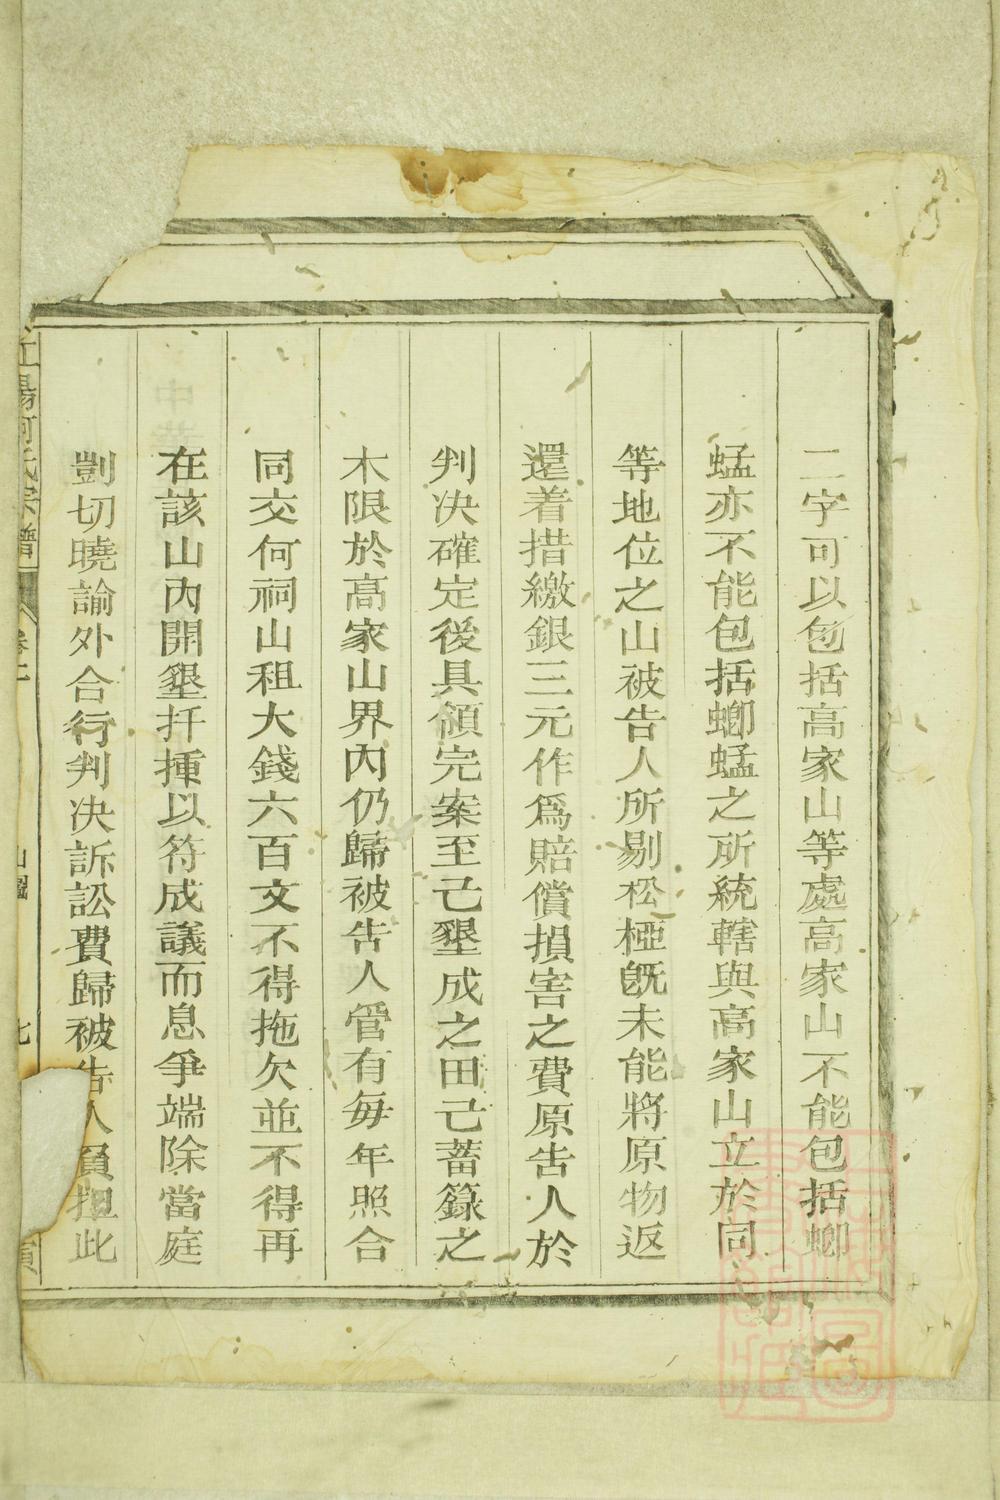 二字可以包括高家山等處高家山不能包括螂
蜢亦不能包括螂蜢之所統轄與高家山立於同
等地位之山被告人所剔松椏旣未能將原物返
還着措繳銀三元作爲賠償損害之費原告人於
判决確定後具領完案至己墾成之田己蓄籙之
木限於高家山界內仍歸被告人管有每年照合
同交何祠山租大錢六百文不得拖欠並不得再
在該山內開墾扦揰以符成議而息爭端除當庭
剴切曉諭外合行判决訴訟費歸被告人負担此
江陽何氏宗譜
卷
山圖
七